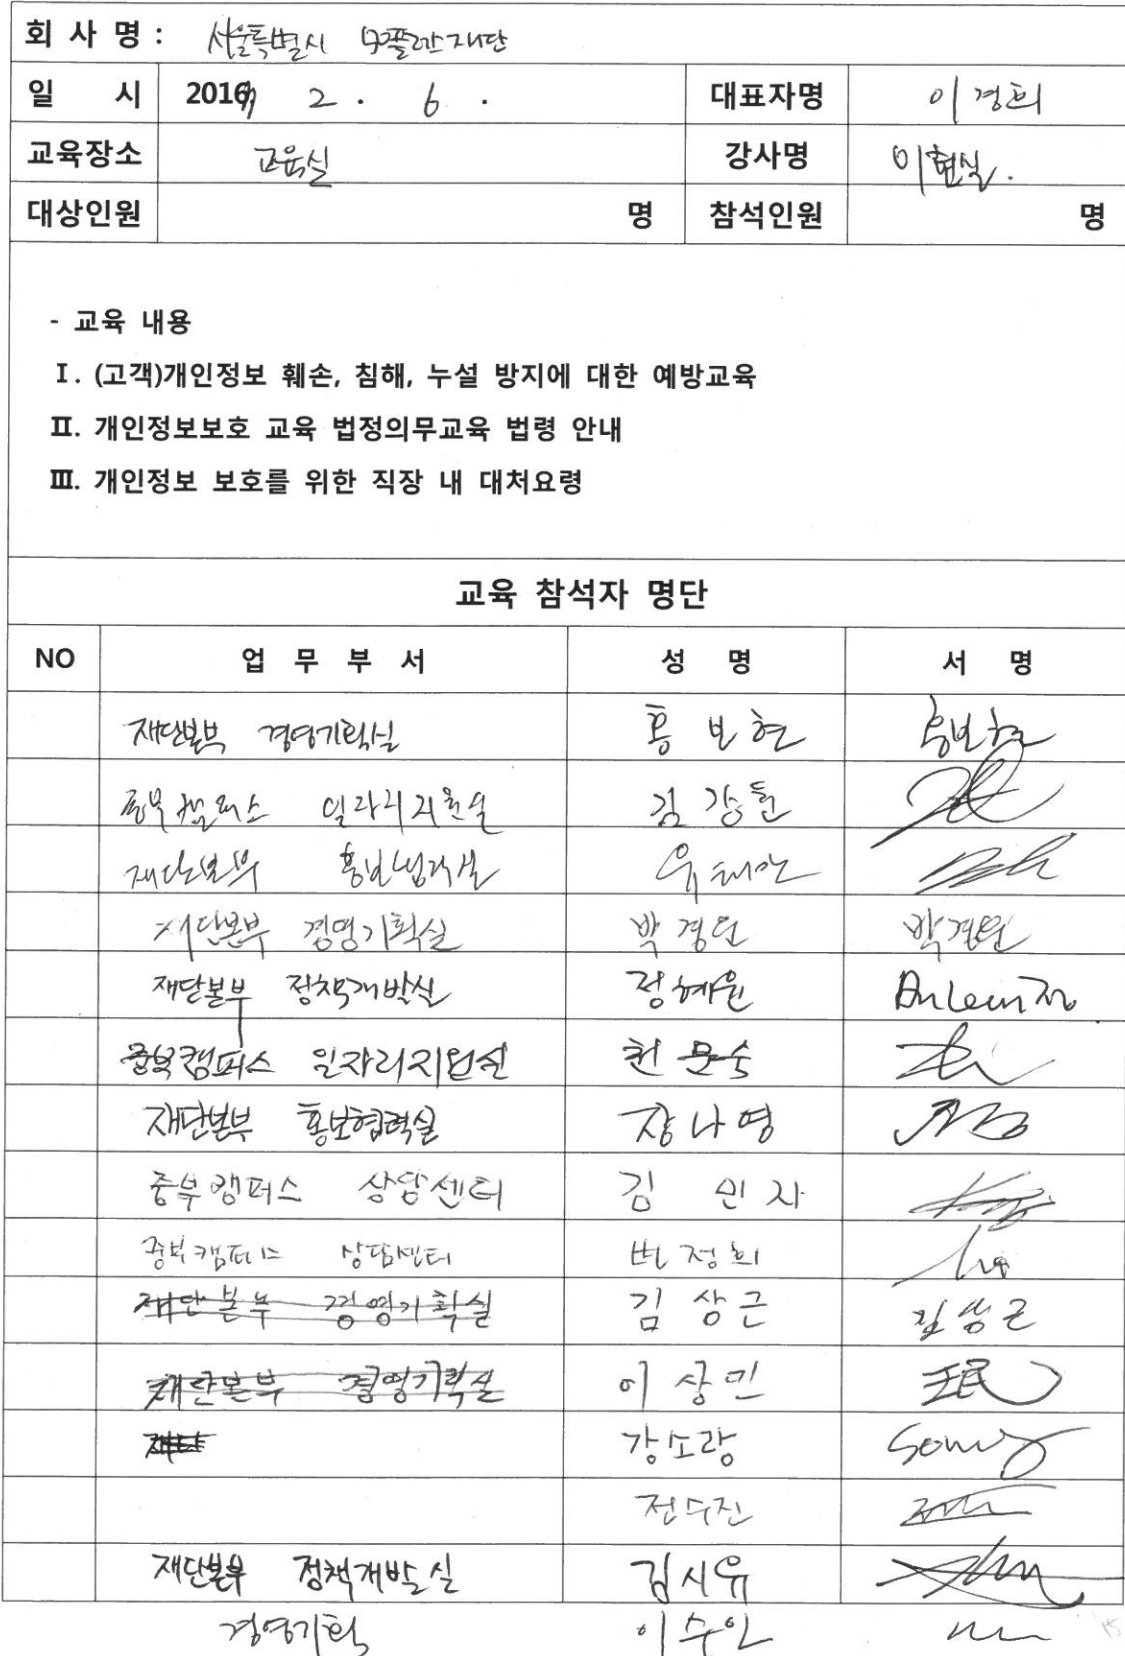 회 사 명 : 서울특별시 50플러스재단
일 시 2017 2 . 6 . 대표자명 이경희
교육장소 교육실 강사명 이현실.
대상인원 명 참석인원 명
- 교육 내용
Ⅰ. (고객)개인정보 훼손, 침해, 누설 방지에 대한 예방교육
Ⅱ. 개인정보보호 교육 법정의무교육 법령 안내
Ⅲ. 개인정보 보호를 위한 직장 내 대처요령
교육 참석자 명단
NO 업 무 부 서 성 명 서 명
재단본부 경영기획실 홍보현 홍보현
중부캠퍼스 일자리지원실 김강훈
재단본부 홍보협력실 유태안
재단본부 경영기획실 박경원 박경원
재단본부 정책개발실 정혜윤
중부캠퍼스 일자리지원실 천문숙
재단본부 홍보협력실 장나영
중부캠퍼스 상담센터 김민자
중부캠퍼스 상담센터 변정희
재단본부 경영기획실 김상근 김상근
재단본부 경영기획실 이상민
재단 강소랑
전수진
재단본부 정책개발실 김시유
경영기획 이수인